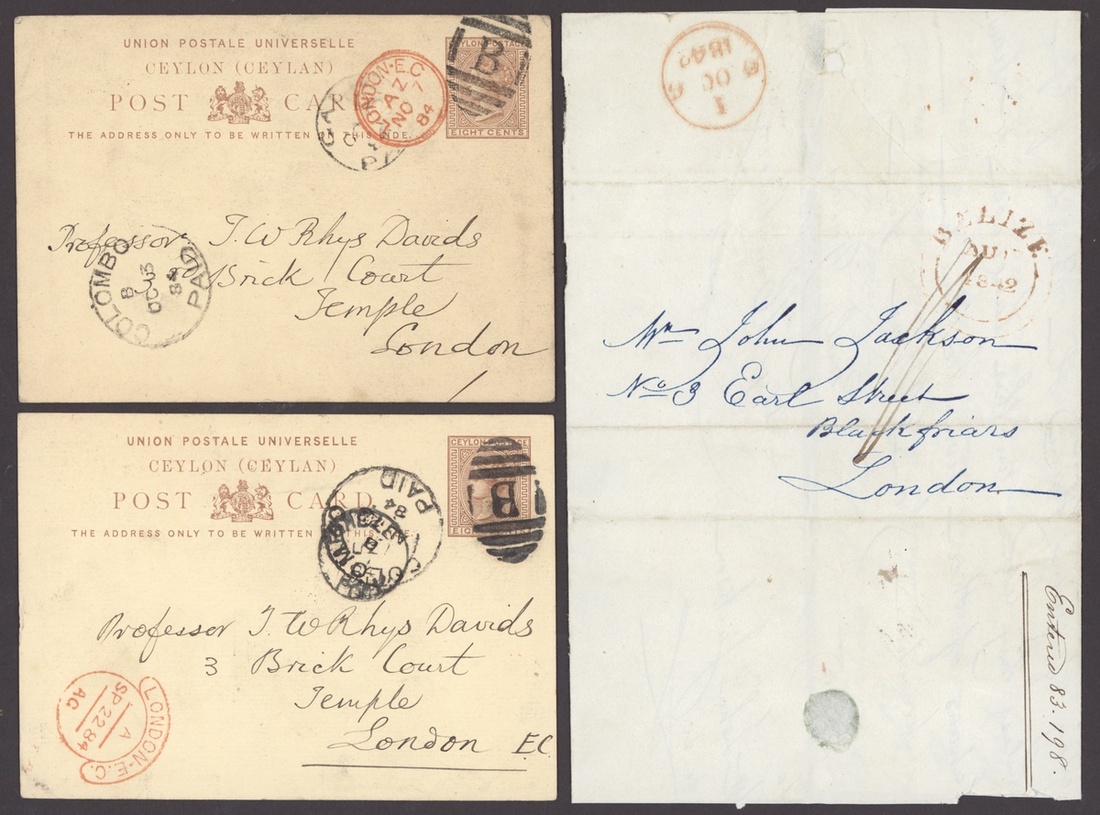 UNION POSTALE UNIVERSELLE
CEYLON (CEYLAN)
POST CARD
THE ADDRESS ONLY TO BE WRITTEN ON THIS SIDE.
CEYLON POSTAGE
EIGHT CENTS
B
LONDON-E.C
AZ
NO 7
84
PA
COLOMBO
B
OC
84
PAID
Professor T. W Rhys Davids
Brick Court
Temple
London
UNION POSTALE UNIVERSELLE
CEYLON (CEYLAN)
POST CARD
THE ADDRESS ONLY TO BE WRITTEN ON THIS SIDE.
CEYLON POSTAGE
EIGHT CENTS
B
COLOMBO
84
PAID
Professor T. W Rhys Davids
3 Brick Court
Temple
London E.C.
LONDON-E.C.
A
SP 22 84
AG
1
OC
1842
BELIZE
AU
1842
Mr John Jackson
No 3 Earl Street
Blackfriars
London
Entered 83.198.